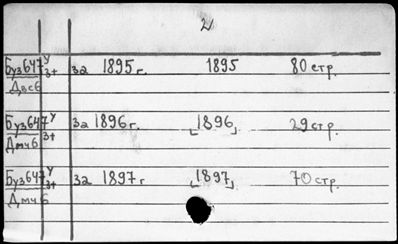 2
Буз647 У 3+ за 1895 г. 1895 80 стр.
Двс6
Буз647 У 3+ за 1896 г. [1896] 29 стр.
Дмч6
Буз647 У 3+ за 1897 г. [1897] 70 стр.
Дмч6